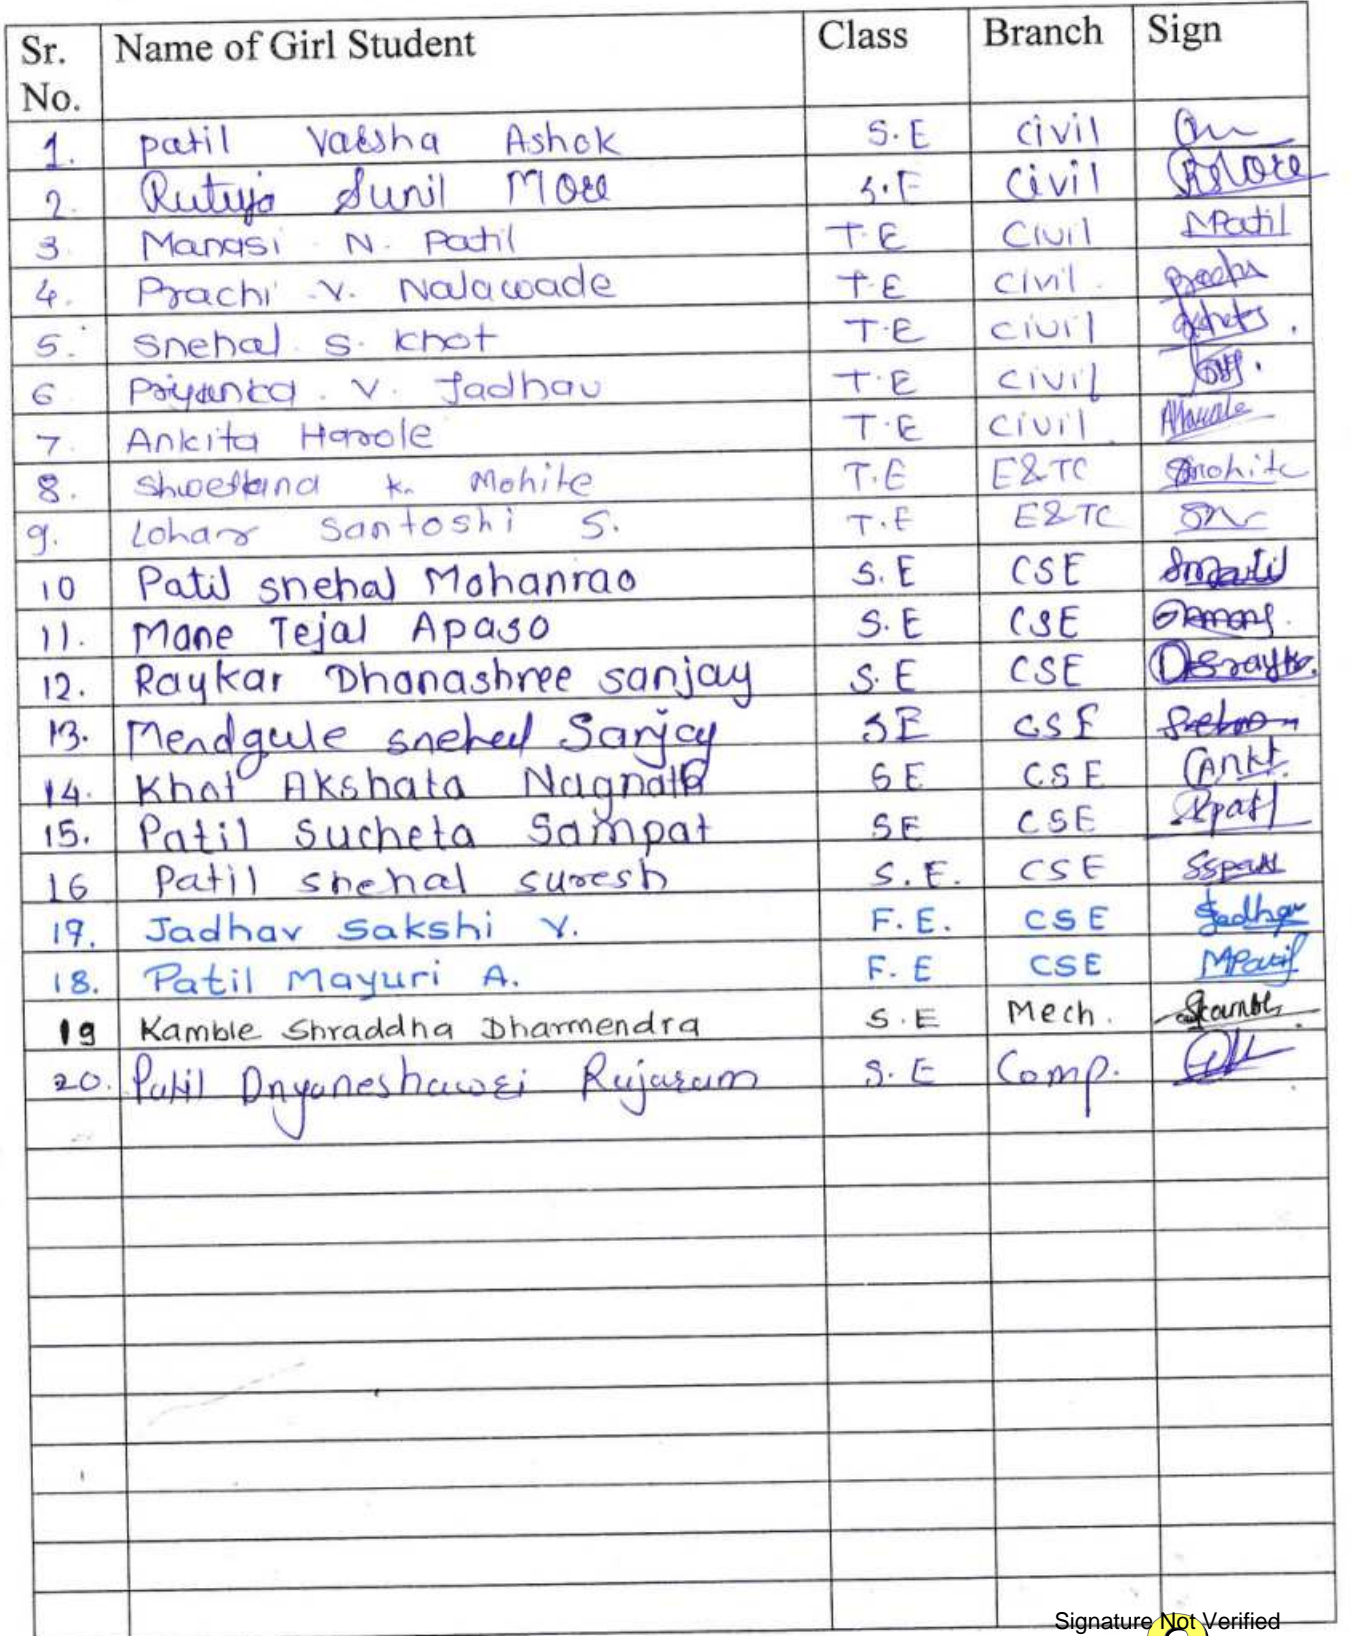 Sr. No. Name of Girl Student Class Branch Sign
1. Patil Varsha Ashok S.E Civil
2. Rutuja Sunil More S.E Civil RSMore
3. Manasi N. Patil T.E Civil MPatil
4. Prachi V. Nalawade T.E Civil.
5. Snehal S. Khot T.E Civil
6 Priyanka V. Jadhav T.E Civil
7. Ankita Harole T.E Civil
8. K. Mohite T.E E&TC
9. Lohar Santoshi S. T.E E&TC
10 Patil Snehal Mohanrao S.E CSE
11. Mane Tejal Apaso S.E CSE
12. Raykar Dhanashree Sanjay S.E CSE
13. Mendgule Snehal Sanjay SE CSE
14. Khot Akshata Nagnath SE CSE
15. Patil Sucheta Sampat SE CSE
16 Patil Snehal Suresh S.E. CSE
17. Jadhav Sakshi V. F.E. CSE
18. Patil Mayuri A. F.E CSE MPatil
19 Kamble Shraddha Dharmendra S.E Mech.
20. Patil Dnyaneshawari Rajaram S.E Comp.
Signature Not Verified